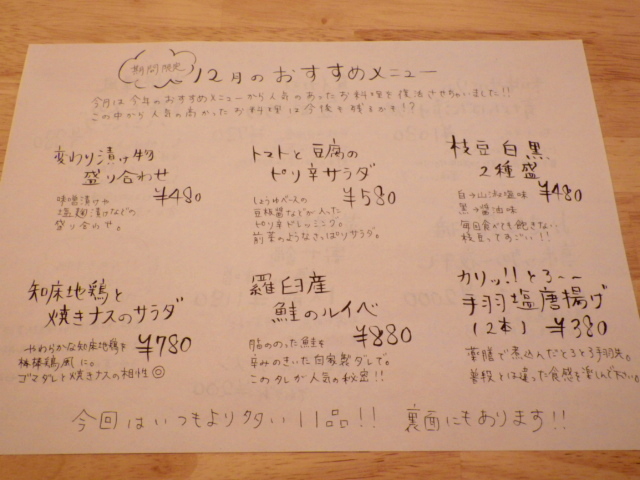 期間限定
12月のおすすめメニュー
今月は今年のおすすめメニューから人気のあったお料理を復活させちゃいました!!
この中から人気の高かったお料理は今後も残るかも!?
変わり漬け物
盛り合わせ
¥480
味噌漬けや
塩麹漬けなどの
盛り合わせ。
トマトと豆腐の
ピリ辛サラダ
¥580
しょうゆベースの
豆板醤などが入った
ピリ辛ドレッシング。
前菜のようなさっぱりサラダ。
枝豆 白黒
2種盛
¥480
白→山海塩味
黒→醤油味
毎日食べても飽きない
枝豆ってすごい!!
知床地鶏と
焼きナスのサラダ
¥780
やわらかな知床地鶏を
棒棒鶏風に。
ゴマダレと焼きナスの相性◎
羅臼産
鮭のルイベ
¥880
脂ののった鮭を
辛みのきいた自家製ダレで。
このタレが人気の秘密!!
カリッ!!とろ~~
手羽塩唐揚げ
(2本) ¥380
薬膳で煮込んだとろとろ手羽先。
普段とは違った食感を楽しんで下さい。
今回はいつもより多い11品!! 裏面にもあります!!